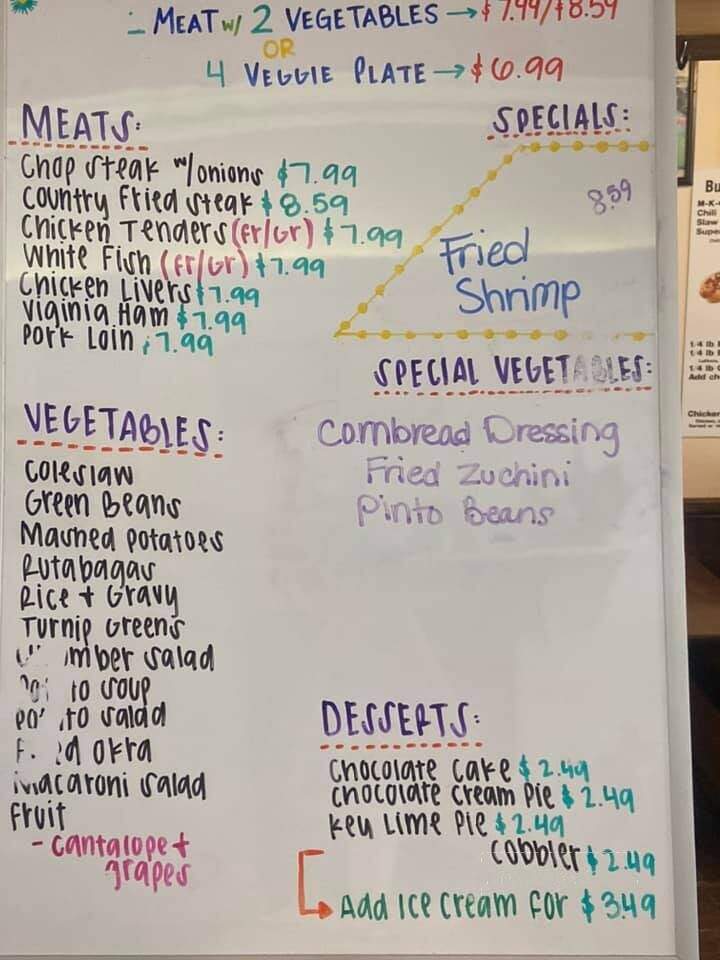 - MEAT W/ 2 VEGETABLES → $7.99/$8.59
OR
4 VEGGIE PLATE → $6.99
MEATS:
Chop Steak w/onions $7.99
Country Fried Steak $8.59
Chicken Tenders (Fr/Gr) $7.99
White Fish (Fr/Gr) $7.99
Chicken Livers $7.99
Viginia Ham $7.99
Pork Loin $7.99
SPECIALS:
8.59
Fried
Shrimp
SPECIAL VEGETABLES:
Cornbread Dressing
Fried Zuchini
Pinto Beans
VEGETABLES:
Coleslaw
Green Beans
Mashed Potatoes
Rutabagas
Rice + Gravy
Turnip Greens
Salad
Soup
Salad
Okra
Macaroni Salad
Fruit
- Cantalope +
grapes
DESSERTS:
Chocolate Cake $2.49
Chocolate Cream Pie $2.49
Key Lime Pie $2.49
Cobbler $2.49
Add Ice Cream For $3.49
Bu
M-K-
Chili
Slaw
Supe
1/4 lb
1/4 lb
1/4 lb
Add ch
Chicken